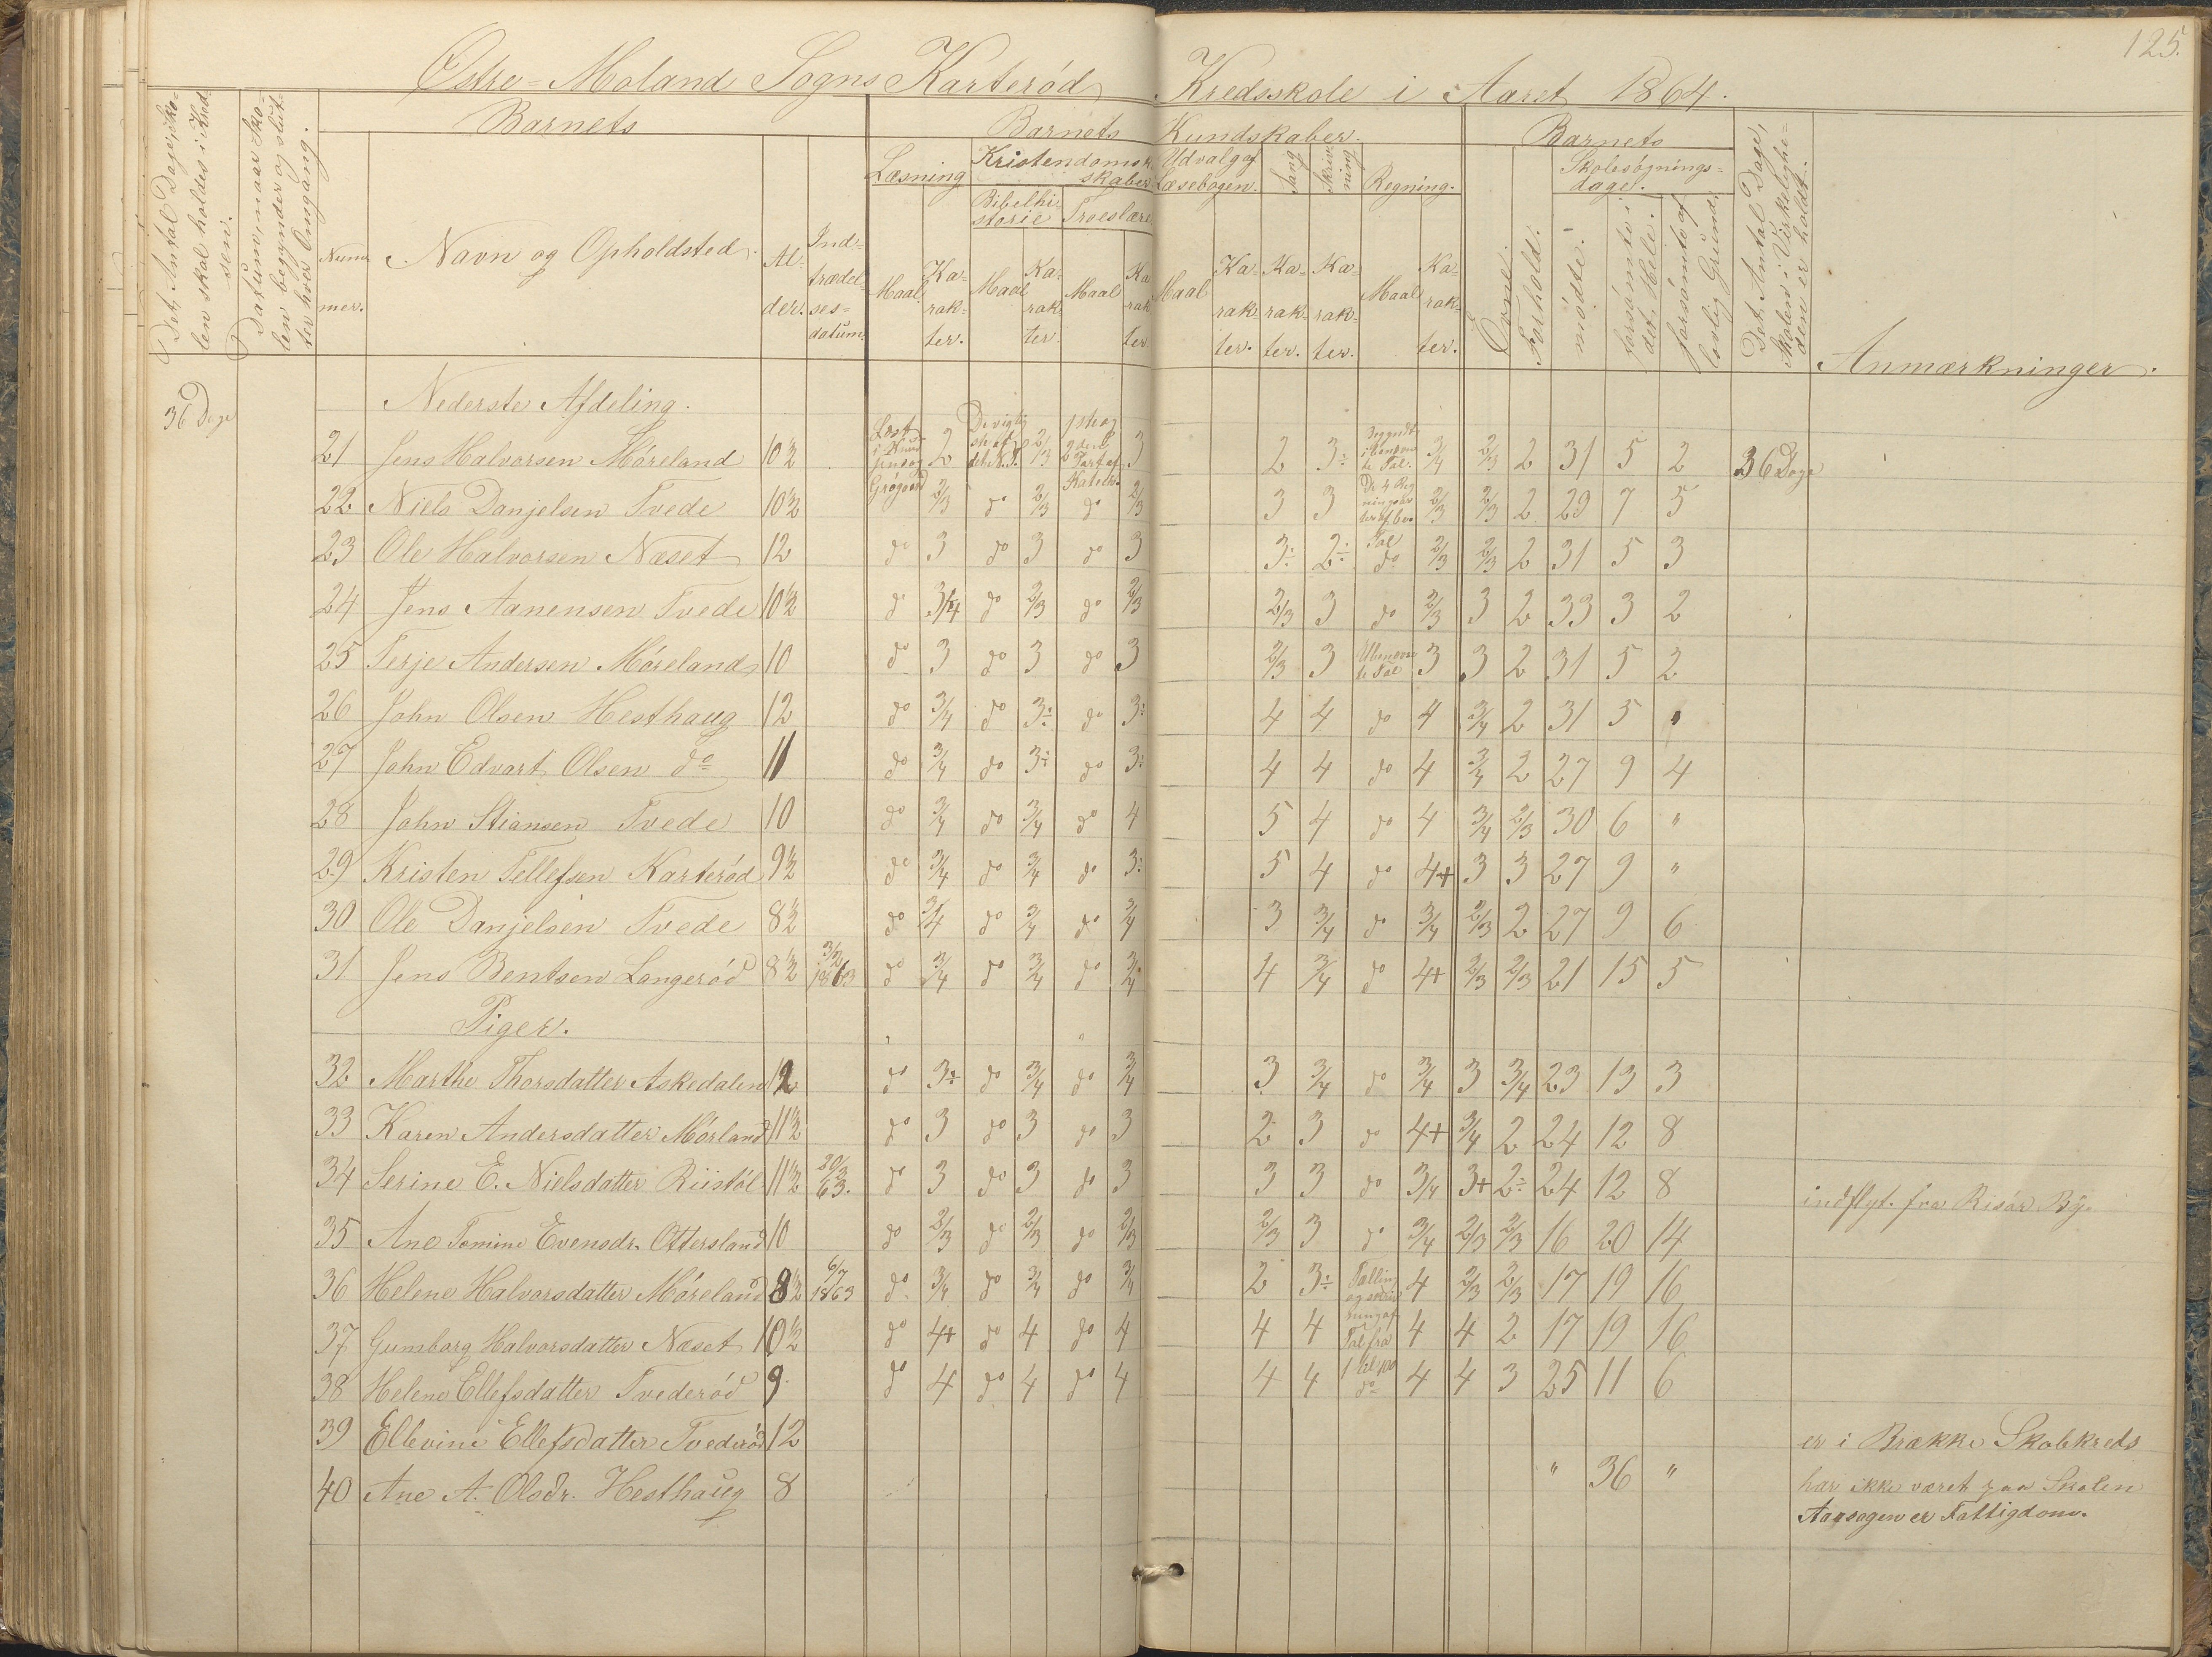 125.
Østre-Moland Sogns Karterød Kredsskole i Aaret 1864.
Det Antal Dage Skolen skal holdes i Kredsen.
Datum, naar Skolen begynder og slutter hver Omgang.
Barnets
Barnets Kundskaber.
Barnets
Nummer.
Navn og Opholdsted.
Alder.
Indtrædelsesdatum.
Læsning
Kristendomskundskaber
Udvalg af Læsebogen.
Sang
Skrivning
Regning.
Bibelhistorie
Troeslære
Maal
Karakter.
Maal
Karakter.
Maal
Karakter
Maal
Karakter.
Karakter.
Karakter.
Maal
Karakter.
Evne.
Forhold.
Skolesøgningsdage.
mødte.
forsømte i det Hele.
forsømte af lovlig Grund.
Det Antal Dage, Skolen i Virkeligheden er holdt.
Anmærkninger.
36 Dage
Nederste Afdeling.
21 Jens Halvorsen Møreland 10½ 2 2/3 3 2 3÷ 3/4 2/3 2 31 5 2 36 Dage
22 Niels Danjelsen Tvede 10½ 2/3 do 2/3 do 2/3 3 3 2/3 2/3 2 29 7 5
23 Ole Halvorsen Næset 12 do 3 do 3 do 3 3÷ 2÷ do 2/3 2/3 2 31 5 3
24 Jens Aanensen Tvede 10½ do 3/4 do 2/3 do 2/3 2/3 3 do 2/3 3 2 33 3 2
25 Terje Andersen Møreland 10 do 3 do 3 do 3 2/3 3 Ubenævnte Tal 3 3 2 31 5 2
26 John Olsen Hesthaug 12 do 3/4 do 3÷ do 3÷ 4 4 do 4 3/4 2 31 5 "
27 John Edvart Olsen do 11 do 3/4 do 3÷ do 3÷ 4 4 do 4 3/4 2 27 9 4
28 John Stiansen Tvede 10 do 3/4 do 3/4 do 4 5 4 do 4 3/4 2/3 30 6 "
29 Kristen Tellefsen Karterød 9½ do 3/4 do 3/4 do 3÷ 5 4 do 4+ 3 3 27 9 "
30 Ole Danjelsen Tvede 8½ do 3/4 do 3/4 do 3/4 3 3/4 do 3/4 2/3 2 27 9 6
31 Jens Bentsen Langerød 8½ 3/2 1863 do 3/4 do 3/4 do 3/4 4 3/4 do 4+ 2/3 2/3 21 15 5
Piger.
32 Marthe Thorsdatter Askedalen 12 do 3÷ do 3/4 do 3/4 3 3/4 do 3/4 3 3/4 23 13 3
33 Karen Andersdatter Mørland 11½ do 3 do 3 do 3 2 3 do 4+ 3/4 2 24 12 8
34 Serine E. Nielsdatter Riistøl 11½ 30/3 63. do 3 do 3 do 3 3 3 do 3/4 3+ 2÷ 24 12 8 indflyt. fra Risør By.
35 Ane Tomine Evensdr. Ottersland 10 do 2/3 do 2/3 do 2/3 2/3 3 do 3/4 2/3 2/3 16 20 14
36 Helene Halvorsdatter Møreland 8½ 6/7 1863 do 3/4 do 3/4 do 3/4 2 3÷ 4 2/3 2/3 17 19 16
37 Gunborg Halvorsdatter Næset 10½ do 4+ do 4 do 4 4 4 Tal fra 4 4 2 17 19 16
38 Helene Ellefsdatter Tvederød 9 do 4 do 4 do 4 4 4 1 til 100 do 4 4 3 25 11 6
39 Ellevine Ellefsdatter Tvederød 12 er i Brække Skolekreds
40 Ane A. Olsdr. Hesthaug 8 " 36 " har ikke været paa Skolen
Aarsagen er Fattigdom.